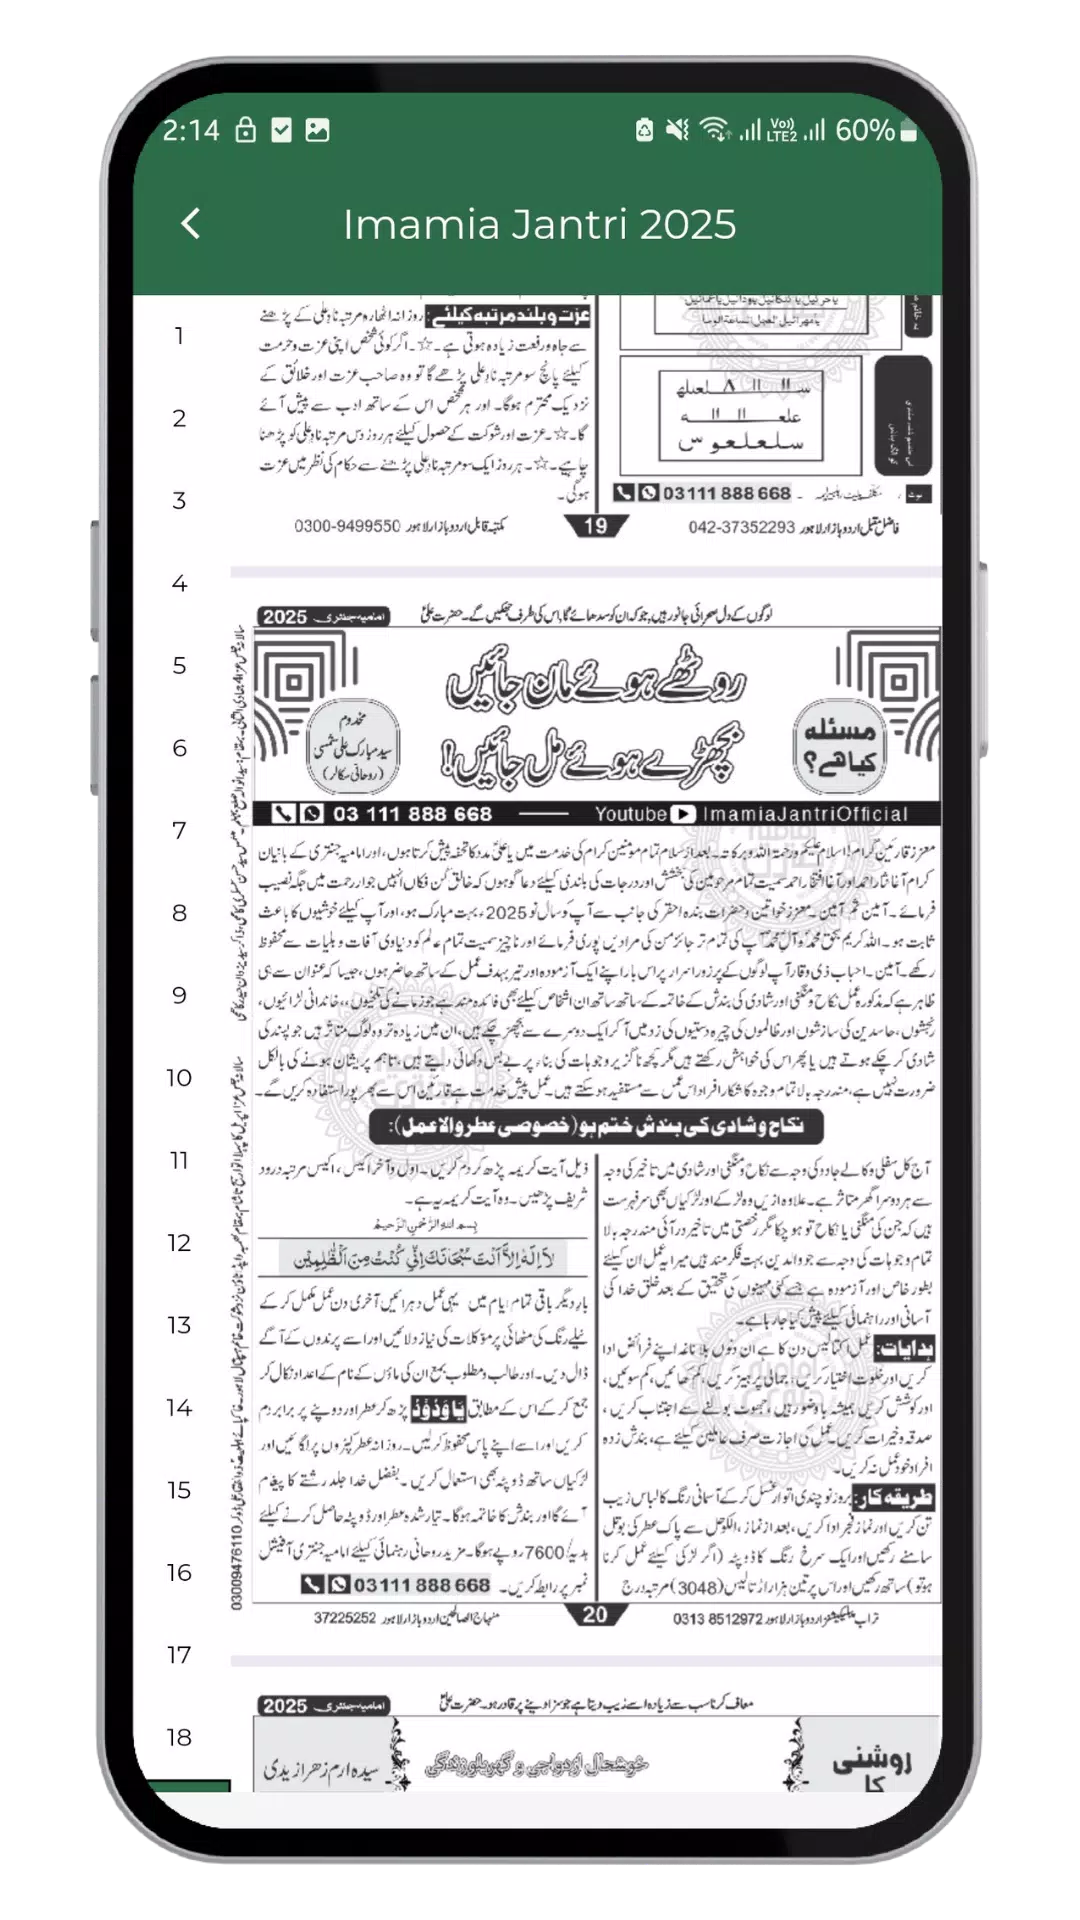 2:14
Vo)) LTE2 60%
Imamia Jantri 2025
1
2
3
4
5
6
7
8
9
10
11
12
13
14
15
16
17
18
عزت و بلند مرتبہ کیلئے: روزانہ اٹھارہ مرتبہ نادِ علی کے پڑھنے
سے جاہ و رفعت زیادہ ہوتی ہے۔ ☆۔ اگر کوئی شخص اپنی عزت و حرمت
کیلئے پانچ سو مرتبہ نادِ علی پڑھے گا تو وہ صاحب عزت اور خلائق کے
نزدیک محترم ہوگا۔ اور ہر شخص اس کے ساتھ ادب سے پیش آئے
گا۔ ☆۔ عزت اور شوکت کے حصول کیلئے ہر روز دس مرتبہ نادِ علی کو پڑھنا
چاہیے۔ ☆۔ ہر روز ایک سو مرتبہ نادِ علی پڑھنے سے حکام کی نظر میں عزت
ہوگی۔
نوٹ
03111 888 668
فاضل مقبل اردو بازار لاہور 042-37352293
19
مکتبہ قابل اردو بازار لاہور 0300-9499550
لوگوں کے دل صحرائی جانور ہیں، جو کہ ان کو سدھائے گا، اس کی طرف جھکیں گے۔ حضرت علیؑ
امامیہ جنتری 2025
روٹھے ہوئے مان جائیں
بچھڑے ہوئے مل جائیں!
مسئلہ
کیا ھے؟
مخدوم
سید مبارک علی شمسی
(روحانی سکالر)
03 111 888 668 Youtube ImamiaJantriOfficial
معزز قارئین گرام! اسلام علیکم ورحمتہ اللہ وبرکاتہ۔ بعد از سلام تمام مومنین کرام کی خدمت میں یا علیؑ مدد کا تحفہ پیش کرتا ہوں، اور امامیہ جنتری کے بانیان
کرام آغا نثار احمد اور آغا افتخار احمد سمیت تمام مرحومین کی بخشش اور درجات کی بلندی کیلئے دعا گو ہوں کہ خالق کُن فکاں انہیں جوار رحمت میں جگہ نصیب
فرمائے۔ آمین ثم آمین۔ معزز خواتین و حضرات بندہ احقر کی جانب سے آپ کو سال نو 2025ء بہت مبارک ہو، اور آپ کیلئے خوشیوں کا باعث
ثابت ہو۔ اللہ کریم بحق محمدؐ و آل محمدؑ آپ کی تمام تر جائز من کی مرادیں پوری فرمائے اور ناچیز سمیت تمام عالم کو دنیاوی آفات و بلیات سے محفوظ
رکھے۔ آمین۔ احباب ذی وقار آپ لوگوں کے پر زور اسرار پر اس بار اپنے ایک آزمودہ اور تیر بہدف عمل کے ساتھ حاضر ہوں، جیسا کہ عنوان سے ہی
ظاہر ہے کہ مذکورہ عمل نکاح و منگنی اور شادی کی بندش کے خاتمہ کے ساتھ ساتھ ان اشخاص کیلئے بھی فائدہ مند ہے جو زمانے کی تلخیوں، خاندانی لڑائیوں،
رنجشوں، حاسدین کی سازشوں اور ظالموں کی چیرہ دستیوں کی زد میں آ کر ایک دوسرے سے بچھڑ چکے ہیں، ان میں زیادہ تر وہ لوگ متاثر ہیں جو پسند کی
شادی کر چکے ہوتے ہیں یا پھر اس کی خواہش رکھتے ہیں مگر کچھ ناگزیر وجوہات کی بناء پر بے بس دکھائی دیتے ہیں، تاہم پریشان ہونے کی بالکل
ضرورت نہیں ہے، مندرجہ بالا تمام وجوہ کا شکار افراد اس عمل سے مستفید ہو سکتے ہیں۔ عمل پیش خدمت ہے قارئین اس سے بھر پور استفادہ کریں گے۔
نکاح و شادی کی بندش ختم ہو (خصوصی عطر والا عمل):
آج کل سفلی و کالے جادو کی وجہ سے نکاح و منگنی اور شادی میں تاخیر کی وجہ
سے ہر دوسرا گھر متاثر ہے۔ علاوہ ازیں وہ لڑکے اور لڑکیاں بھی سر فہرست
ہیں کہ جن کی منگنی یا نکاح تو ہو چکا مگر رخصتی میں تاخیر در آئی مندرجہ بالا
تمام وجوہات کی وجہ سے جو والدین بہت فکر مند ہیں میرا یہ عمل ان کیلئے
بطور خاص اور آزمودہ ہے جسے کئی مہینوں کی تحقیق کے بعد خلق خدا کی
آسانی اور راہنمائی کیلئے پیش کیا جا رہا ہے۔
ہدایات: عمل اکتالیس دن کا ہے ان دنوں بلا ناغہ اپنے فرائض ادا
کریں اور خلوت اختیار کریں، جمالی پرہیز کریں، کم کھائیں، کم سوئیں،
اور کوشش کریں ہمیشہ باوضو رہیں، جھوٹ بولنے سے اجتناب کریں،
صدقہ و خیرات کریں۔ عمل کی اجازت صرف عاملین کیلئے ہے، بندش زدہ
افراد خود عمل نہ کریں۔
طریقہ کار: بروز نوچندی اتوار غسل کر کے آسمانی رنگ کا لباس زیب
تن کریں اور نماز فجر ادا کریں، بعد از نماز، الکوحل سے پاک عطر کی بوتل
سامنے رکھیں اور ایک سرخ رنگ کا دوپٹہ (اگر لڑکی کیلئے عمل کرنا
ہو تو) ساتھ رکھیں اور اس پر تین ہزار اڑتالیس (3048) مرتبہ درج
ذیل آیت کریمہ پڑھ کر دم کریں۔ اول و آخر اکیس، اکیس مرتبہ درود
شریف پڑھیں۔ وہ آیت کریمہ یہ ہے۔
بسم اللہ الرحمٰن الرحیم
لَا اِلٰهَ اِلَّا اَنْتَ سُبْحَانَكَ اِنِّي كُنْتُ مِنَ الظّٰلِمِيْنَ
بار دیگر باقی تمام ایام میں یہی عمل دہرائیں آخری دن عمل مکمل کر کے
نیلے رنگ کی مٹھائی پر موکلات کی نیاز دلائیں اور اسے پرندوں کے آگے
ڈال دیں۔ اور طالب و مطلوب بمع ان کی ماؤں کے نام کے اعداد نکال کر
جمع کر کے اس کے مطابق یَا وَدُوْدُ پڑھ کر عطر اور دوپٹے پر برابر دم
کریں اور اسے اپنے پاس محفوظ کر لیں۔ روزانہ عطر کپڑوں پر لگائیں اور
لڑکیاں ساتھ ڈوپٹہ بھی استعمال کریں۔ بفضل خدا جلد رشتے کا پیغام
آئے گا اور بندش کا خاتمہ ہوگا۔ تیار شدہ عطر اور ڈوپٹہ حاصل کرنے کیلئے
ہدیہ/7600 روپے ہوگا۔ مزید روحانی رہنمائی کیلئے امامیہ جنتری آفیشل
نمبر پر رابطہ کریں۔ 03111 888 668
تراب پبلیکیشنز اردو بازار لاہور 0313 8512972
20
منہاج الصالحین اردو بازار لاہور 37225252
03009476110
معاف کرنا سب سے زیادہ اسے زیب دیتا ہے جو سزا دینے پر قادر ہو۔ حضرت علیؑ
امامیہ جنتری 2025
روشنی
کا
خوشحال ازدواجی و گھریلو زندگی
سیدہ ارم زھرا زیدی